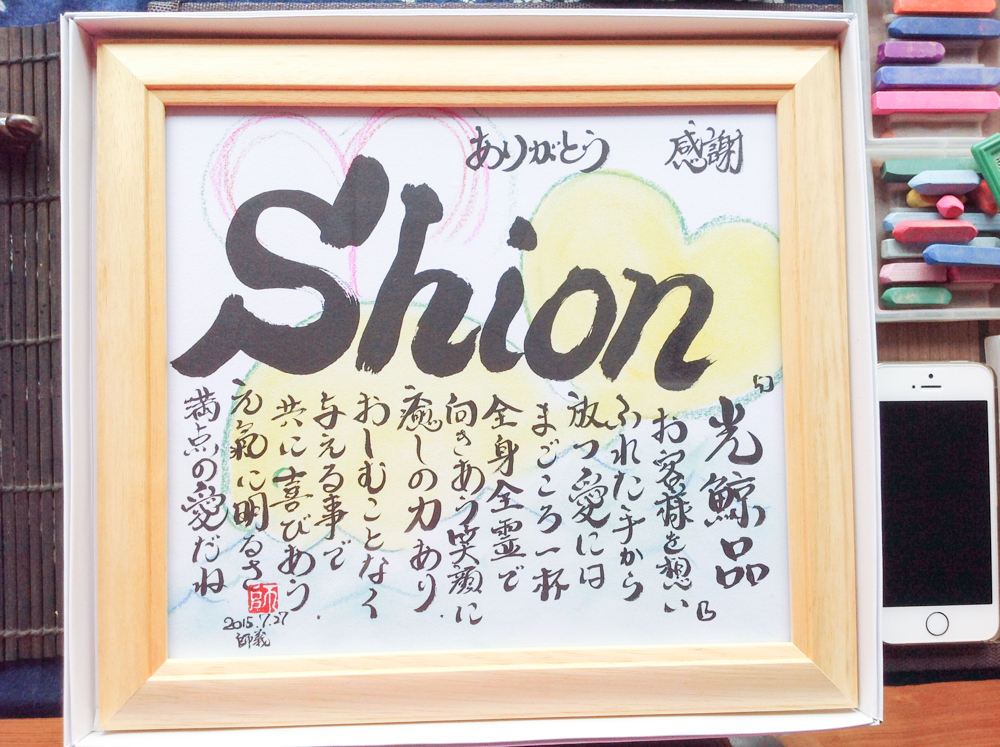 ありがとう 感謝
Shion
「光鯨品」
お客様を想い
ふれた手から
放つ愛には
まごころ一杯
全身全霊で
向きあう笑顔に
癒しの力あり
おしむことなく
与える事で
共に喜びあう
元氣に明るさ
満点の愛だね
師
2015.7.27
師義